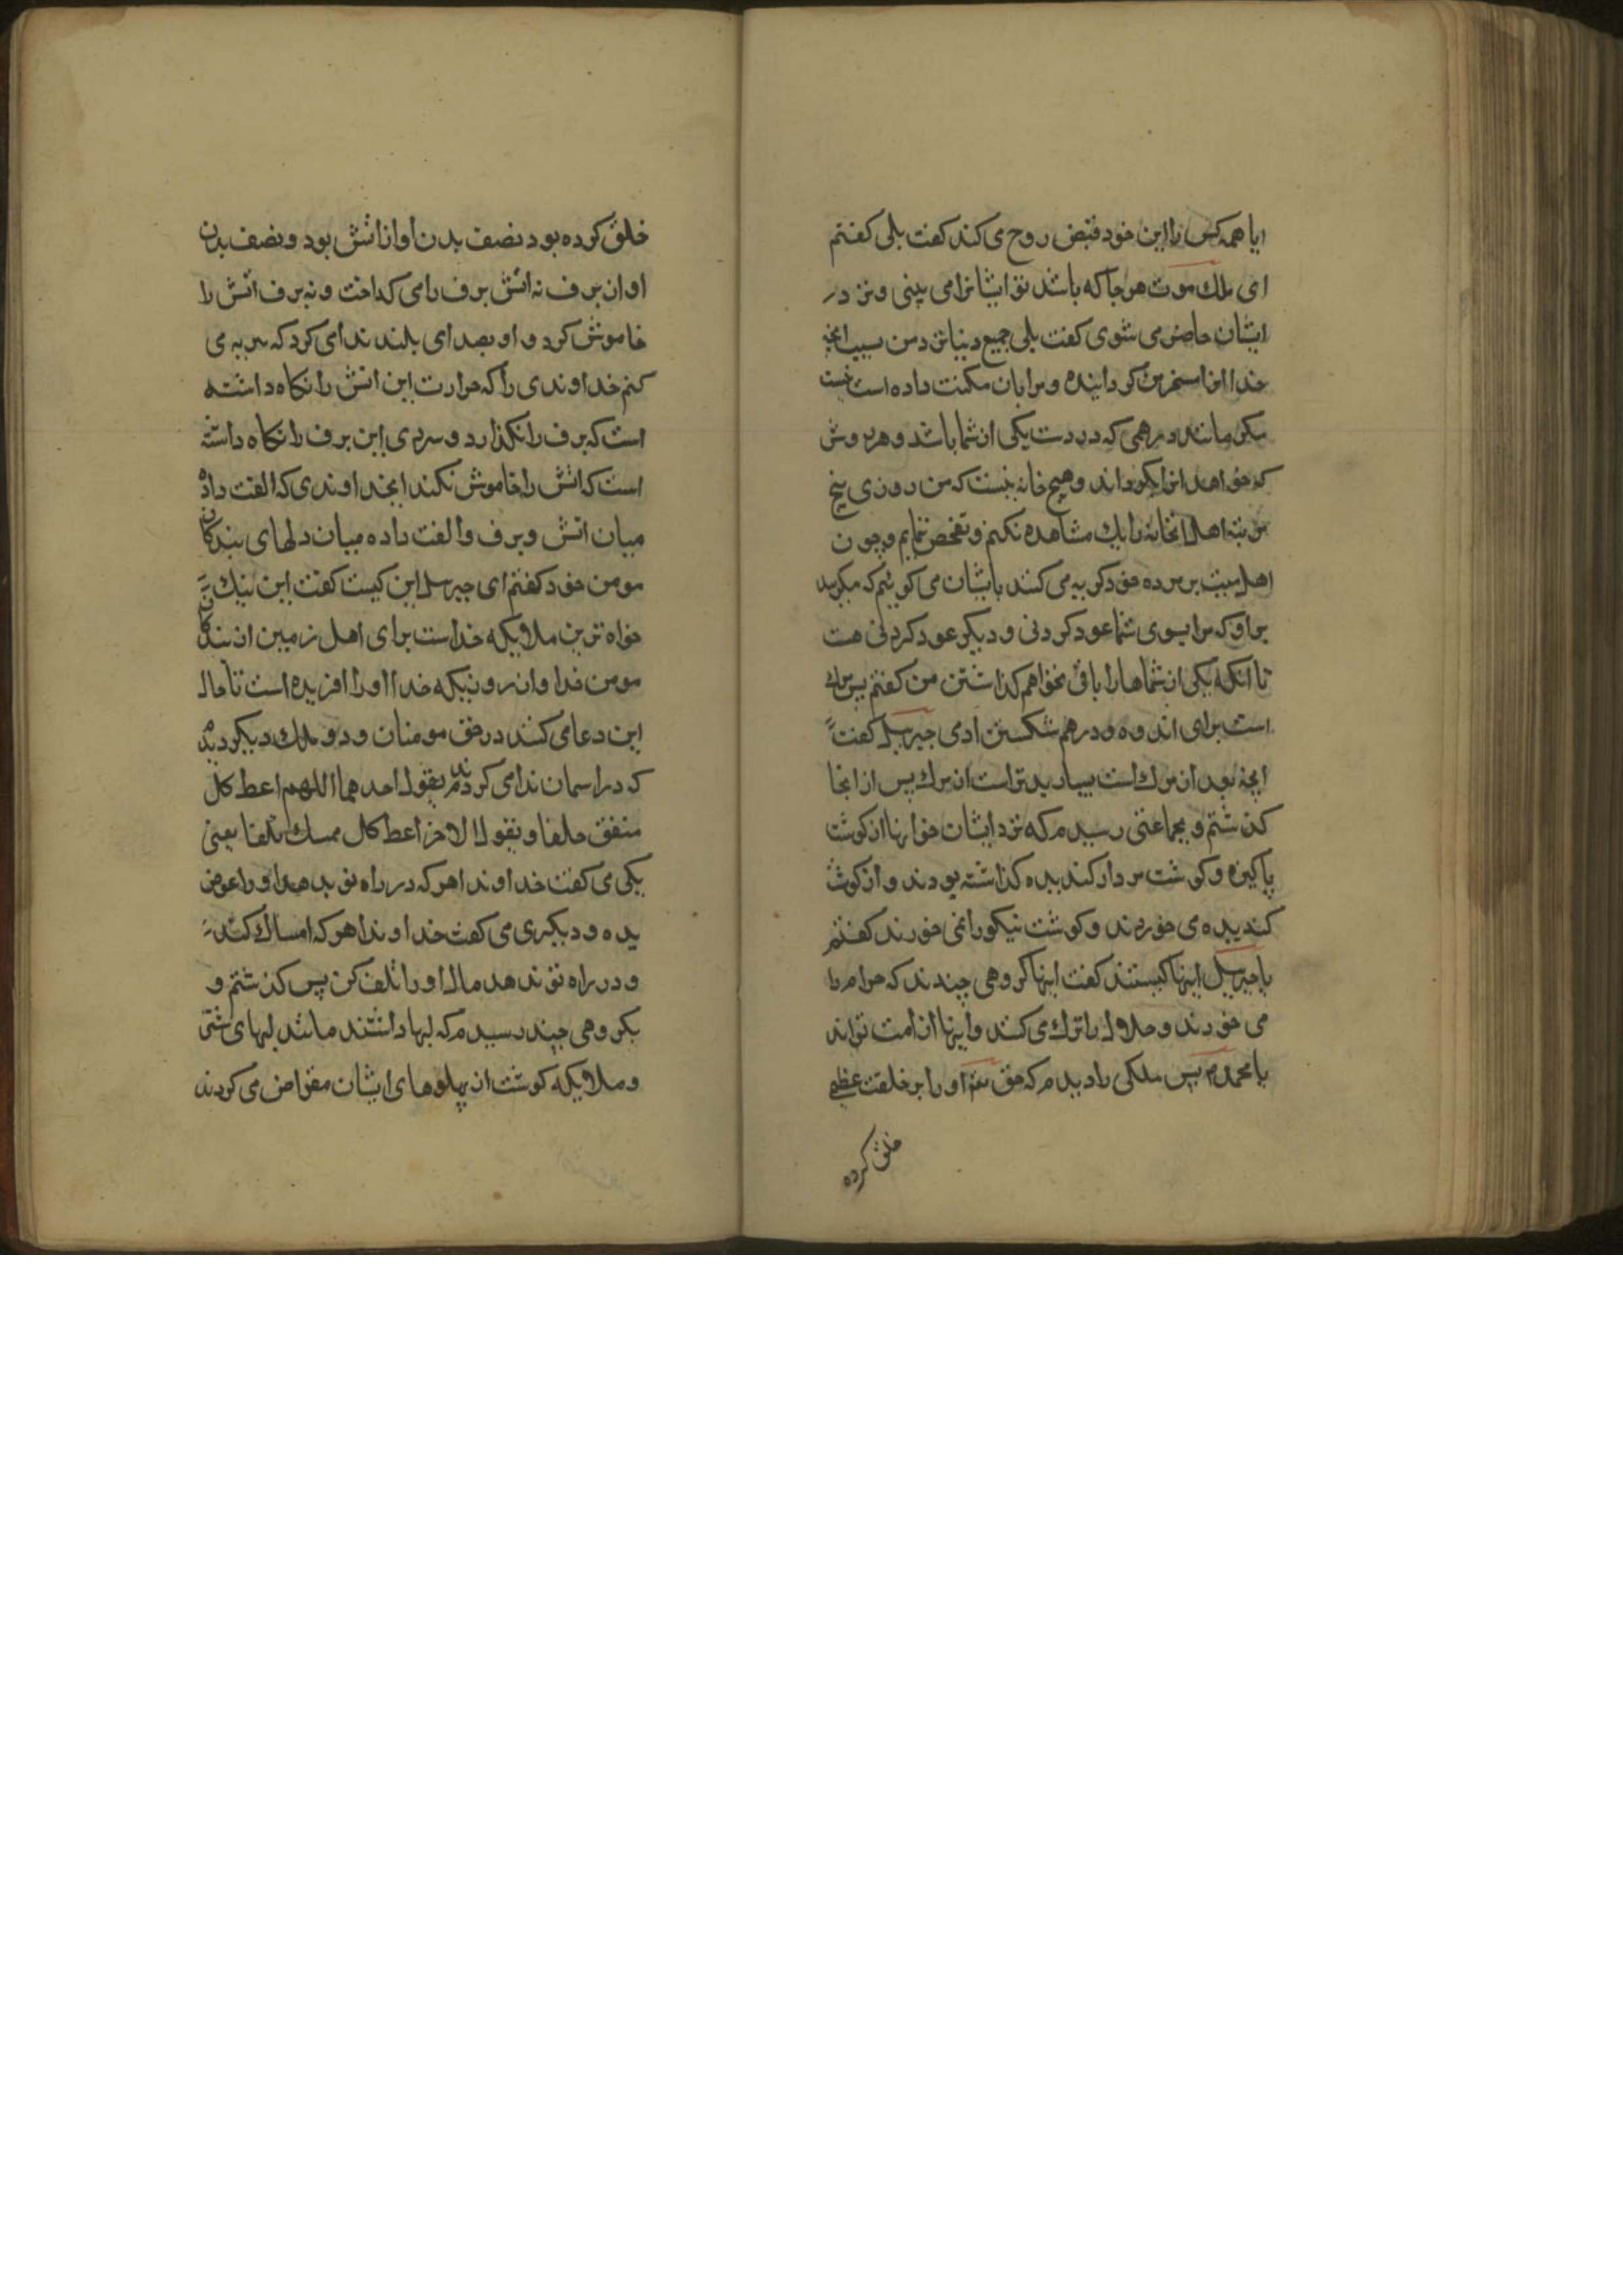 ایا همه کس را این خود قبض روح می کند کفت بلی کفتم
ای ملك موت هر جا که باشد تو ایشانرا می بینی و نزد
ایشان حاضر می شوی کفت بلی جمیع دنیا نزد من بسبب انچه
خدا انرا مسخر من کردانیده و مرا بان مکنت داده است نیست
مکر مانند درهمی که در دست یکی از شما باشد و هر روش
که خواهد انرا بکرداند و هیچ خانه نیست که من روزی پنج
مرتبه اهل انخانه را یك مشاهده نکنم و تفحص ننمایم و چون
اهل میت بر مرده خود کریه می کنند بایشان می کوییم که مکریید
بر او که مرا بسوی شما عود کردنی و دیکر عود کردنی هست
تا انکه یکی از شماها را باقی نخواهم کذاشتن من کفتم بس مرك
است برای اندوه و درهم شکستن ادمی جبرییل کفت
انچه بعد از مرك است بسیار بدتر است از مرك پس از انجا
کذشتم و بجماعتی رسیدم که نزد ایشان خوانها از کوشت
پاکیزه و کوشت مردار کندیده کذاشته بودند و از کوشت
کندیده می خوردند و کوشت نیکو را نمی خورند کفتم
یا جبرییل اینها کیستند کفت اینها کروهی چندند که حرام را
می خورند و حلال را ترك می کنند و اینها از امت تواند
یا محمد پس ملکی را دیدم که حق او را بر خلقت عظیم
خلق کرده
خلق کرده بود نصف بدن او از اتش بود و نصف بدن
او از برف نه اتش برف را می کداخت و نه برف اتش را
خاموش کرد و او بصدای بلند ندا می کرد که می
کنم خداوندی را که حرارت این اتش را نکاه داشته
است که برف را نکذارد و سردی این برف را نکاه داشته
است که اتش را خاموش نکند ایخداوندی که الفت داده
میان اتش و برف و الفت داده میان دلهای بندکان
مومن خود کفتم ای جبرییل این کیست کفت این نیك
خواه ترین ملایکه خداست برای اهل زمین از بندکان
مومن خدا و از روزیکه خدا او را افریده است تا حال
این دعا می کند در حق مومنان و دو ملك دیکر دیدم
که در اسمان ندا می کردند یقول احدهما اللهم اعط کل
منفق خلفا و یقول الاخر اعط کل ممسك تلفا یعنی
یکی می کفت خداوندا هر که در راه تو بدهد او را عوض
بده و دیکری می کفت خداوندا هر که امساك کند
و در راه تو ندهد مال او را تلف کن پس کذشتم و
بکروهی چند رسیدم که لبها داشتند مانند لبهای شتر
و ملایکه کوشت از پهلوهای ایشان مقراض می کردند